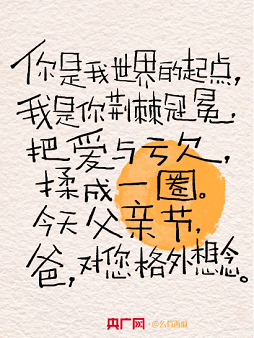 你是我世界的起点，
我是你荆棘冠冕，
把爱与亏欠，
揉成一圈。
今天父亲节，
爸，对您格外想念。
央广网